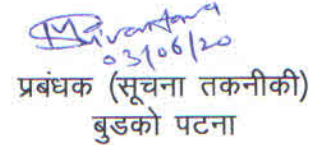 03/06/20
प्रबंधक (सूचना तकनीकी)
बुडको पटना